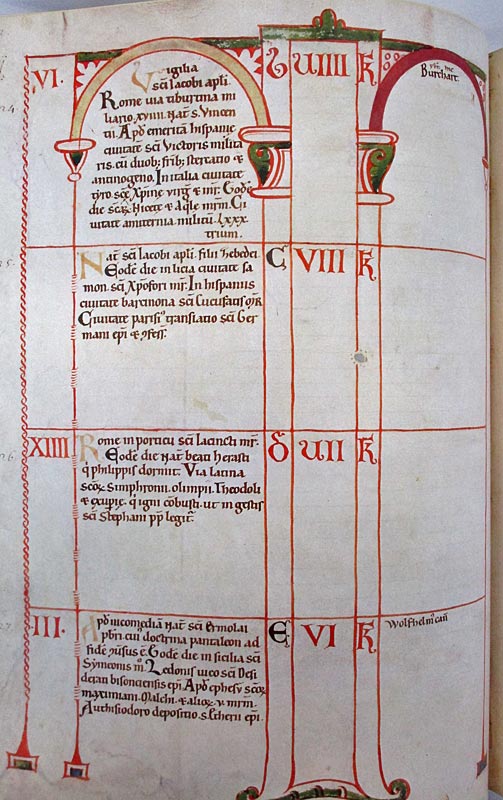 VI.
Vigilia
sci Iacobi apli.
Rome uia tiburtina mi
liario xviiii nat s. Vincen
tii. Apd emerita hispanie
ciuitate sci Victoris milita
ris. cu duob; frib; stercatio &
antinogeno. In italia ciuitate
tyro sce Xpine uirg & mr. Eode
die scaz Nicete & Aqile mrm. Ci
uitate amiternia militu lxxx
trium.
VIIII K
Burchart.
Nat sci Iacobi apli. filii Zebedei
Eode die in licia ciuitate sa
mon. sci Xpofori mr. In hispaniis
ciuitate barcinona sci Cucufatis
Ciuitate parisi translatio sci Ger
mani epi & 9fess.
C VIII K
XIIII
Rome in porticu sci Iacincti mr.
Eode die nat beati herasti
q philippis dormit. Via latina
scoz Simphronii. olimpii. Theodoli
& exuprie. q igni cobusti. ut in gestis
sci Stephani pp legit.
d VII K
III.
Apd nicomedia nat sci Ermolai
pbri. cui doctrina pantaleon ad
fide e. Eode die in sicilia sci
Symeonis m. Ledonis uico sci Desi
derati bisoncensis epi. Apd ephesu scoz
maximiani. Malchi & alioz v. mrm.
Authisiodoro depositio s. Etherii epi.
E VI K
Wolfhelm can